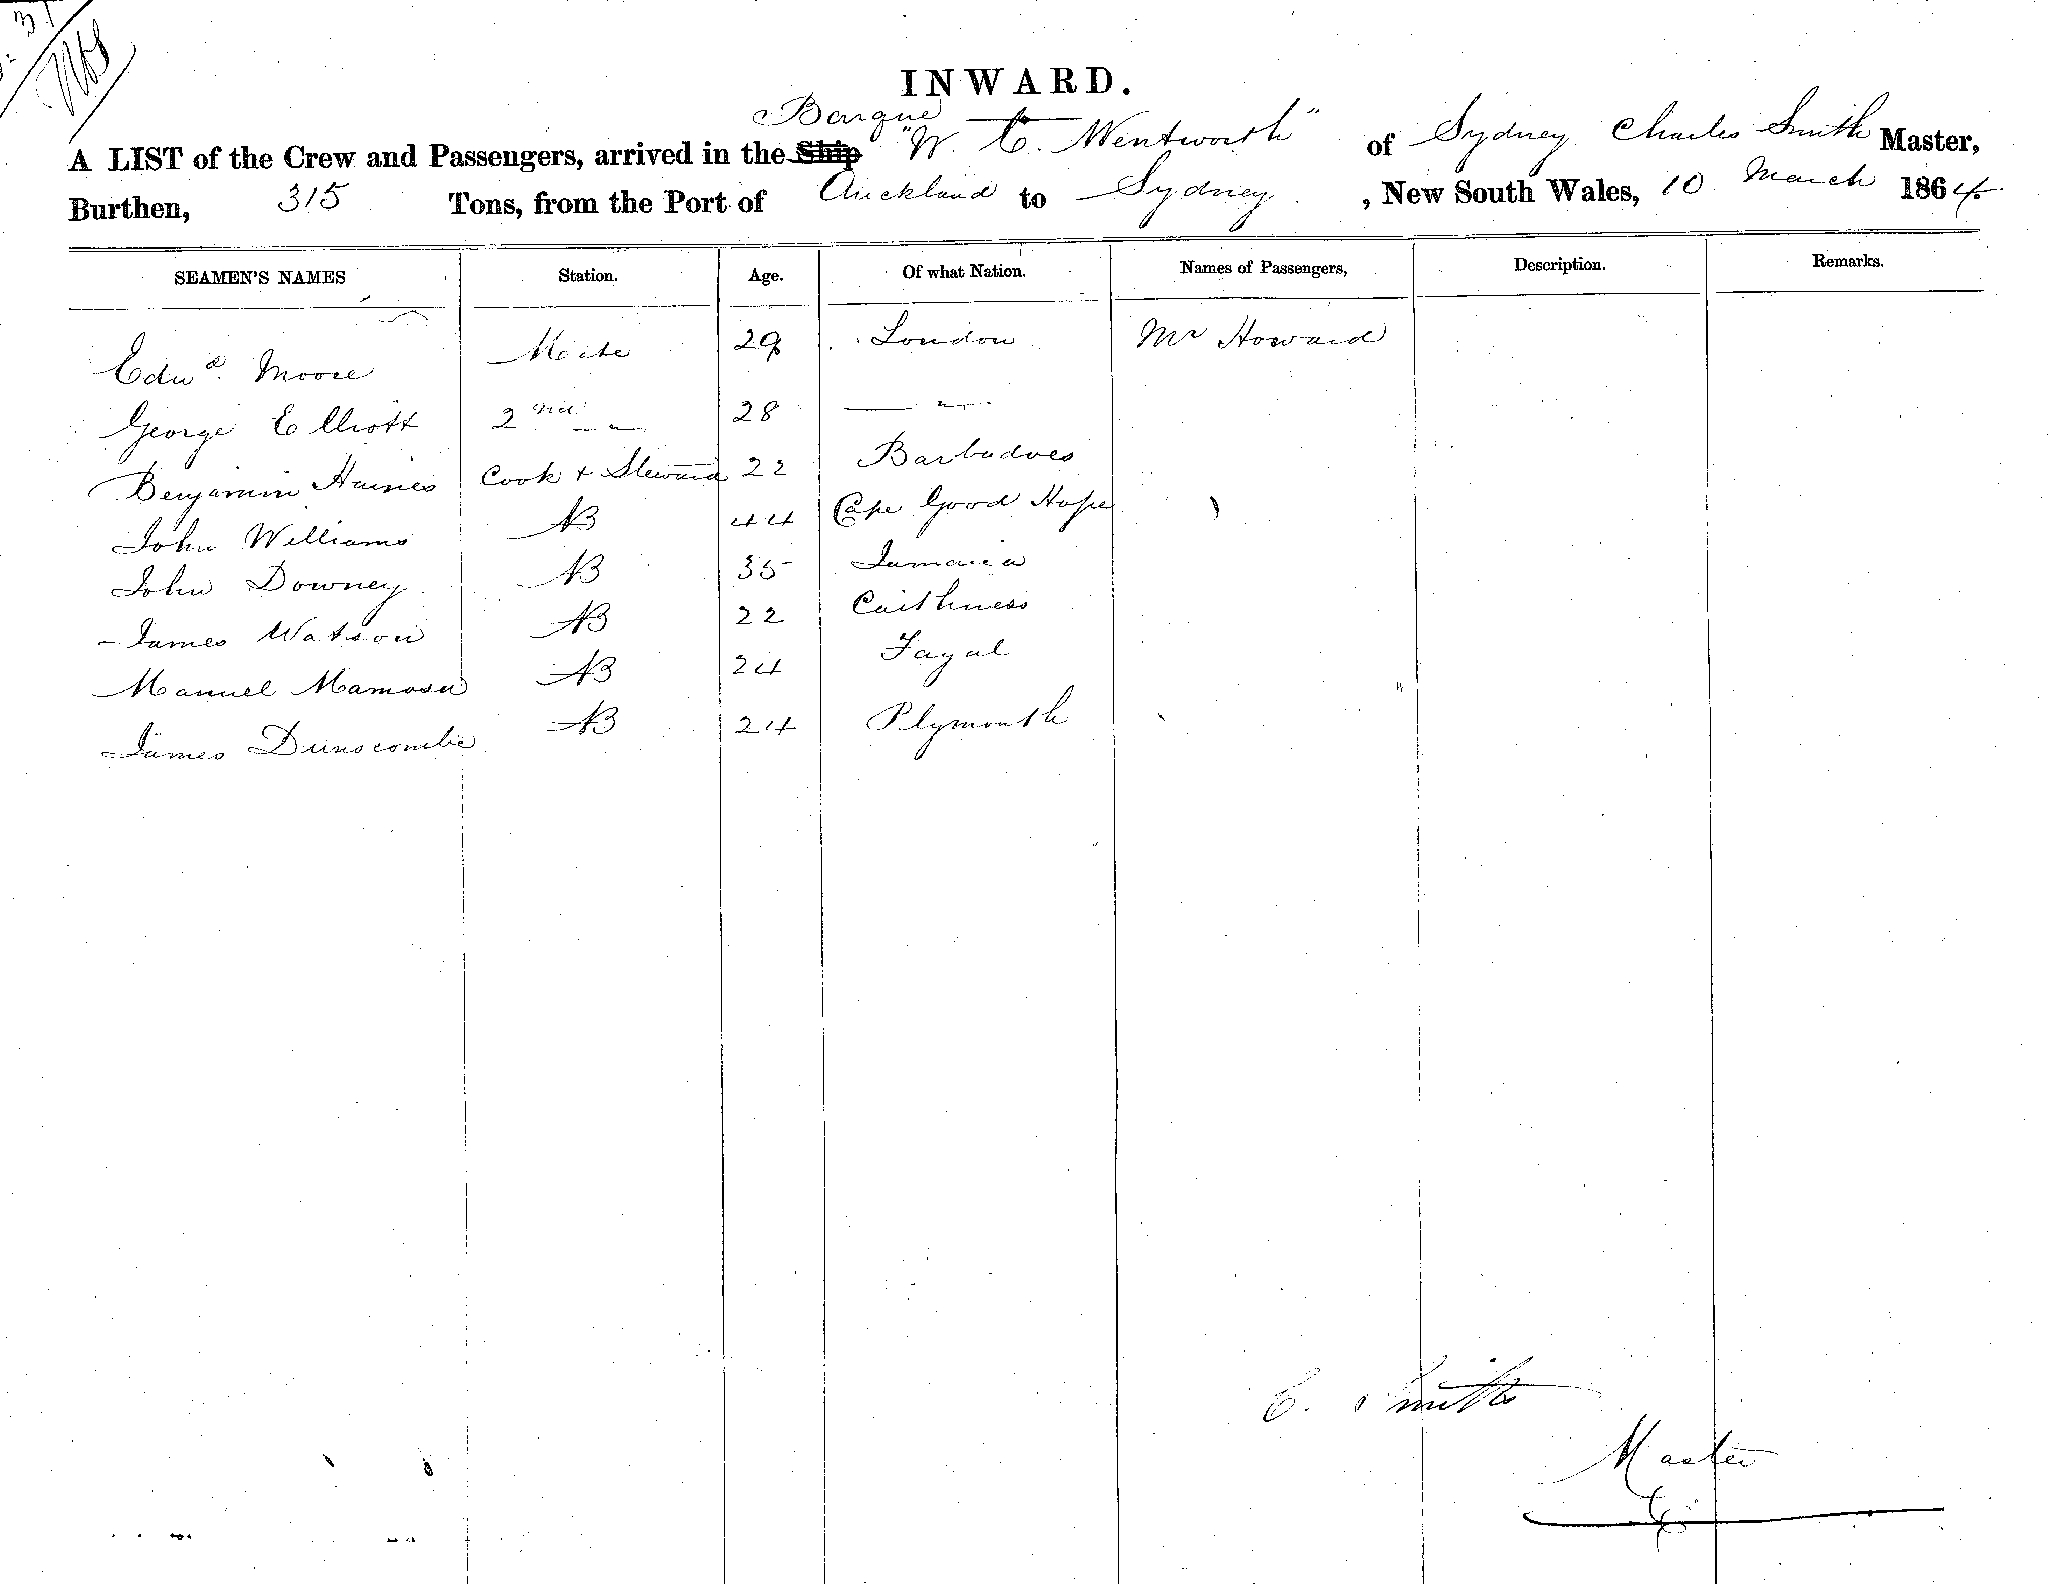 31
INWARD.
Barque
A LIST of the Crew and Passengers, arrived in the Ship "W. C. Wentworth" of Sydney Charles Smith Master,
Burthen, 315 Tons, from the Port of Auckland to Sydney, New South Wales, 10 March 1864.
SEAMEN'S NAMES Station. Age. Of what Nation. Names of Passengers, Description. Remarks.
Edwd. Moore Mate 29 London Mr Howard
George Elliott 2nd — " — 28 — " —
Benjamin Haines Cook + Steward 22 Barbadoes
John Williams AB 44 Cape Good Hope
John Downey AB 35 Jamaica
James Watson AB 22 Caithness
Manuel AB 24 Fayal
James Dunscombe AB 24 Plymouth
C. Smith
Master